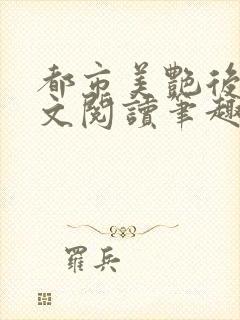 都市美艷後
文閱讀筆趣
羅兵